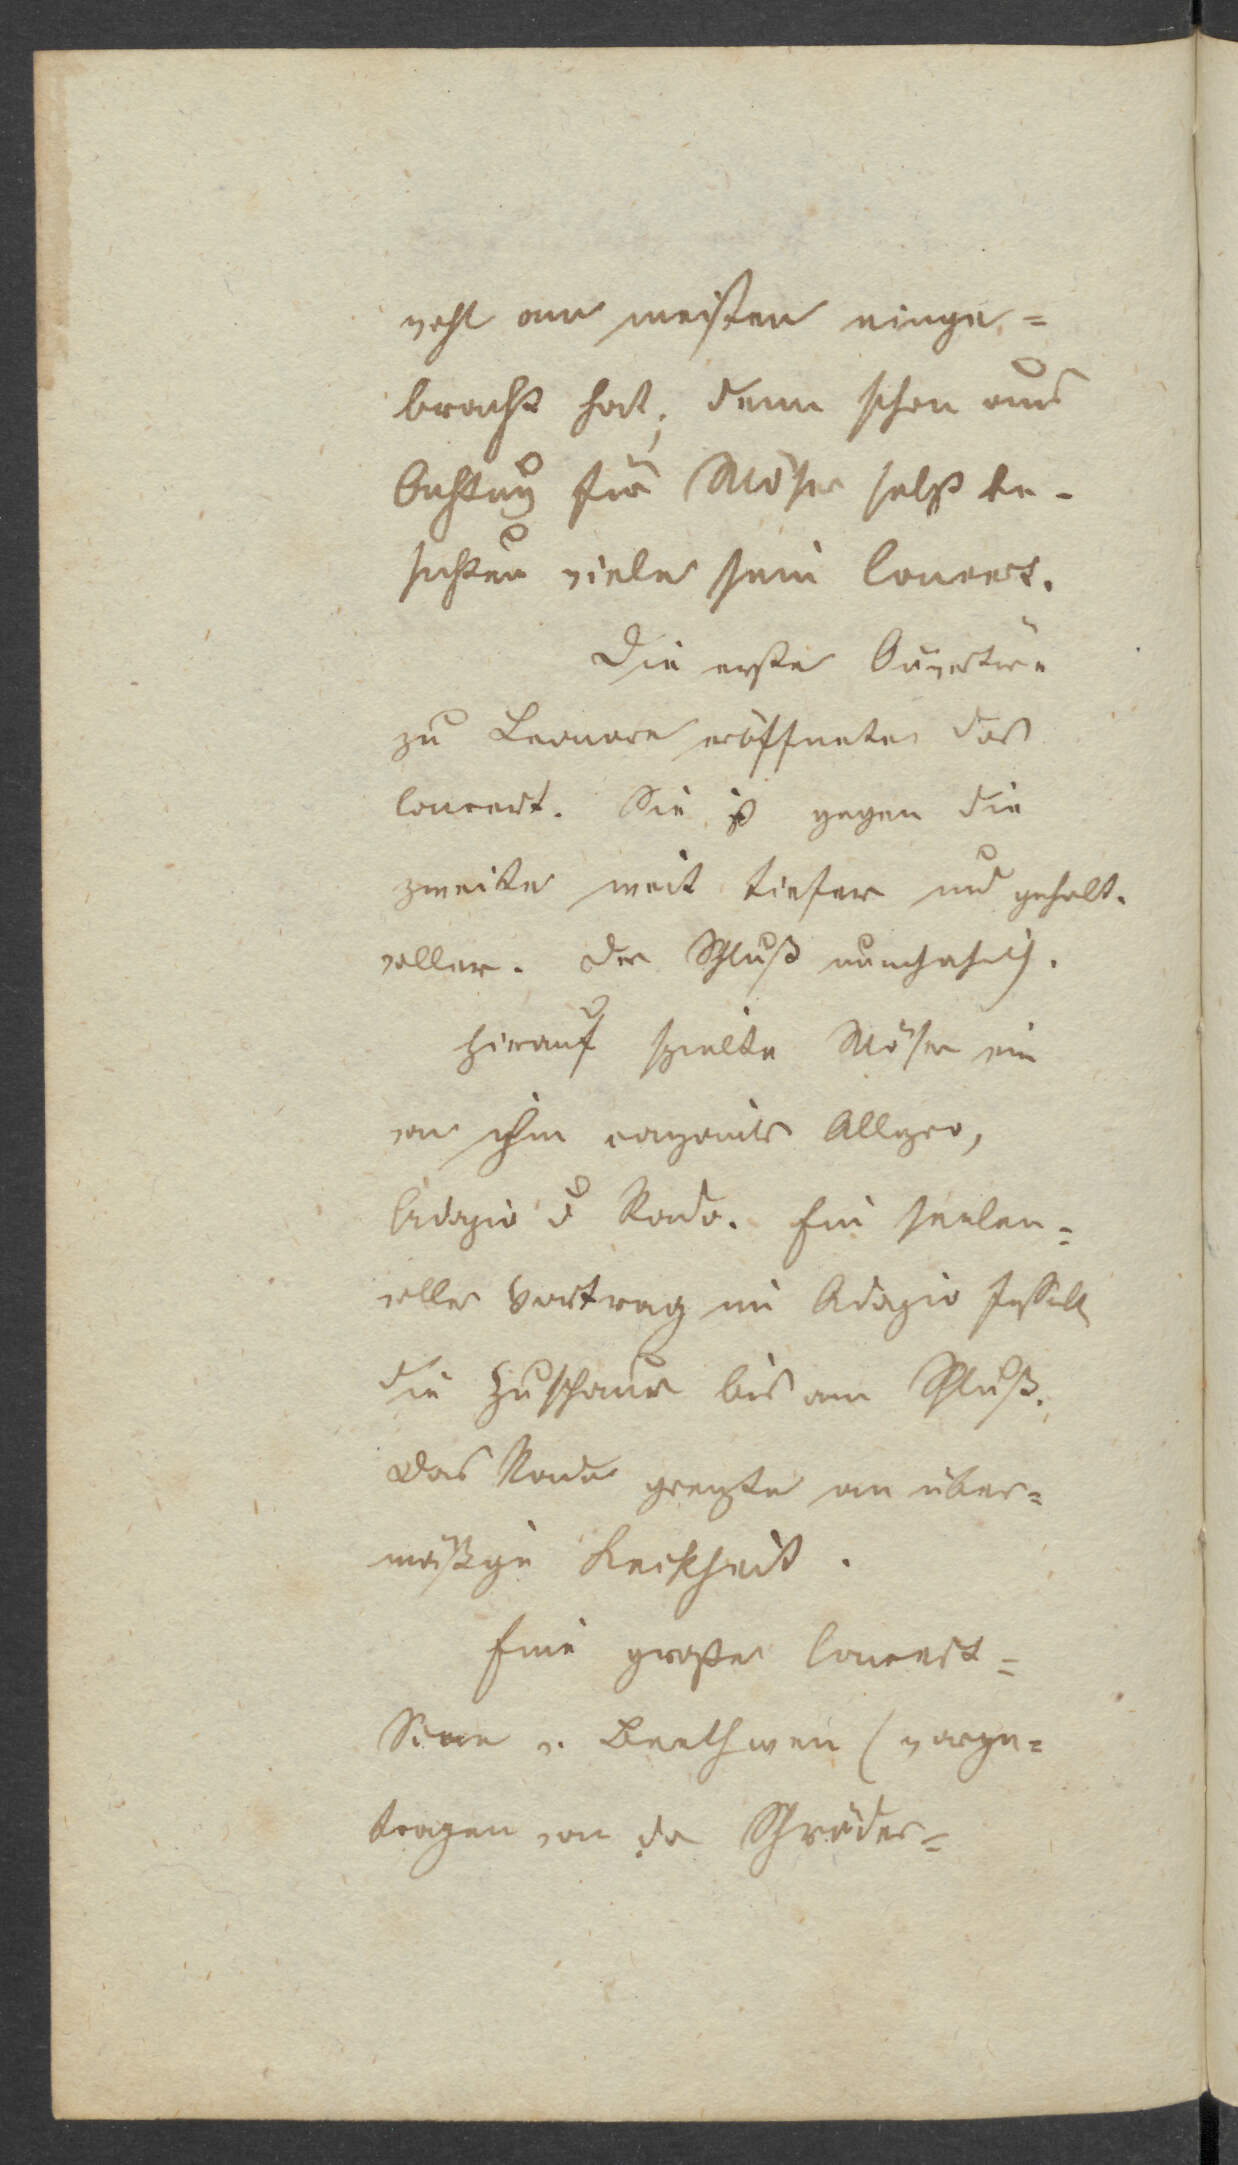 wohl am meisten einge=
bracht hat, denn schon aus
Achtung für Möser selbst be-
suchten viele sein Concert.
Die erste Ouvertüre
zu Leonore eröffnete das
Concert. Sie ist gegen die
zweite weit tiefer und gehalt-
voller. Der Schluß
Hierauf spielte Möser ein
von ihm componirtes Allegro,
Adagio u Rondo. Ein seelen=
voller Vortrag im Adagio fesselte
die Zuschauer bis am Schluß.
Das Rondo grenzte an über=
mäßige Keckheit.
Eine große Concert=
Scene v. Beethoven (vorge=
tragen von der Schröder=